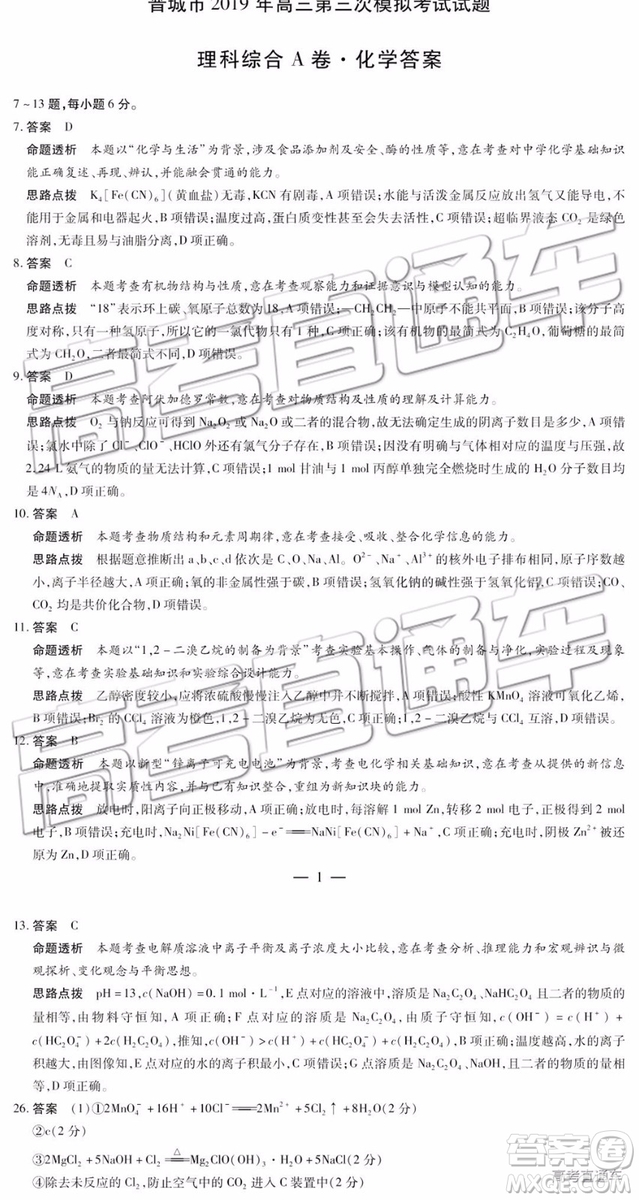 晋城市 2019 年高三第三次模拟考试试题
理科综合 A 卷·化学答案
7~13 题,每小题 6 分。
7. 答案 D
命题透析 本题以“化学与生活”为背景,涉及食品添加剂及安全、酶的性质等,意在考查对中学化学基础知识
能正确复述、再现、辨认,并能融会贯通的能力。
思路点拨 K₄[Fe(CN)₆](黄血盐)无毒,KCN 有剧毒,A 项错误;水能与活泼金属反应放出氢气又能导电,不
能用于金属和电器起火,B 项错误;温度过高,蛋白质变性会失去活性,C 项错误;超临界液态 CO₂ 是绿色
溶剂,无毒且易与油脂分离,D 项正确。
8. 答案 C
命题透析 本题考查有机物结构与性质,意在考查观察能力和证据意识与模型认知的能力。
思路点拨 “18”表示环上碳、氧原子总数为 18,A 项错误;—CH₂CH₂—中原子不能共平面,B 项错误;该分子高
度对称,只有一种氢原子,所以它的一氯代物只有 1 种,C 项正确;该有机物的最简式为 C₂H₄O,葡萄糖的最简
式为 CH₂O,二者最简式不同,D 项错误。
9. 答案 D
命题透析 本题考查阿伏加德罗常数,意在考查对物质结构及性质的理解及计算能力。
思路点拨 O₂ 与钠反应可得到 Na₂O₂ 或 Na₂O 或二者的混合物,故无法正确确定生成的阴离子数目是多少,A 项错
误;氯水中除了 Cl⁻、ClO⁻、HClO 外还有氯气分子,B 项错误;因没有说明与气体相对应的温度与压强,故
2.24 L 氨气的物质的量无法计算,C 项错误;1 mol 甘油与 1 mol 丙醇单独完全燃烧时生成的 H₂O 分子数目均
是 4Nᴀ,D 项正确。
10. 答案 A
命题透析 本题考查物质结构和元素周期律,意在考查接受、吸收、整合化学信息的能力。
思路点拨 根据题意推断出 a、b、c、d 依次是 C、O、Na、Al。O²⁻、Na⁺、Al³⁺的核外电子排布相同,原子序数越
小,离子半径越大,A 项正确;氧的非金属性强于碳,B 项错误;氢氧化钠的碱性强于氢氧化铝,C 项错误;CO、
CO₂ 均是共价化合物,D 项错误。
11. 答案 C
命题透析 本题以“1,2-二溴乙烷的制备为背景”考查实验基本操作、气体的制备与净化,化学实验现象等,
意在考查实验基础知识和实验综合设计能力。
思路点拨 乙醇密度较小,应将浓硫酸慢慢注入乙醇中并不断搅拌,A 项错误;酸性 KMnO₄ 溶液可氧化乙烯,
B 项错误;Br₂ 的 CCl₄ 溶液为橙色,1,2-二溴乙烷为无色,C 项正确;1,2-二溴乙烷与 CCl₄ 互溶,D 项错误。
12. 答案 B
命题透析 本题以新型“锌离子可充电电池”为背景,考查电化学相关基础知识,意在考查从提供的新信息
中,准确地提取实质性内容,并与已有知识整合,重组为新知识块的能力。
思路点拨 放电时,阳离子向正极移动,A 项正确;放电时,负极每溶解 1 mol Zn,转移 2 mol
电子,B 项错误;充电时,Na₂Ni[Fe(CN)₆]-e⁻══NaNi[Fe(CN)₆]+Na⁺,C 项正确;充电时,阴极 Zn²⁺ 被还
原为 Zn,D 项正确。
— 1 —
13. 答案 C
命题透析 本题考查电解质溶液中离子平衡及离子浓度大小比较,意在考查分析、推理能力和宏观辨识与微
观探析、变化观念与平衡思想。
思路点拨 pH=13,c(NaOH)=0.1 mol·L⁻¹,E 点对应的溶液中,溶质是 Na₂C₂O₄、NaHC₂O₄ 且二者的物质的
量相等,由物料守恒知,A 项正确;F 点对应的溶质是 Na₂C₂O₄,由质子守恒知,c(OH⁻)=c(H⁺)+
c(HC₂O₄⁻)+2c(H₂C₂O₄),推知 c(OH⁻)>c(H⁺)+c(HC₂O₄⁻)+c(H₂C₂O₄),B 项正确;温度越高,水的离子
积越大,由图知,E 点对应的水的离子积最小,C 项错误;G 点溶质是 NaOH、Na₂C₂O₄,且二者的物质的量相
等,D 项正确。
26. 答案 (1)①2MnO₄⁻+16H⁺+10Cl⁻══2Mn²⁺+5Cl₂↑+8H₂O(2 分)
②c(2 分)
③2MgCl₂+5NaOH+Cl₂ △══ Mg₂ClO(OH)₃·H₂O
④除去未反应的 Cl₂,防止空气中的 CO₂ 进入 C
高考直通车
高考直通车
高考直通车
答案圈
高考直通车